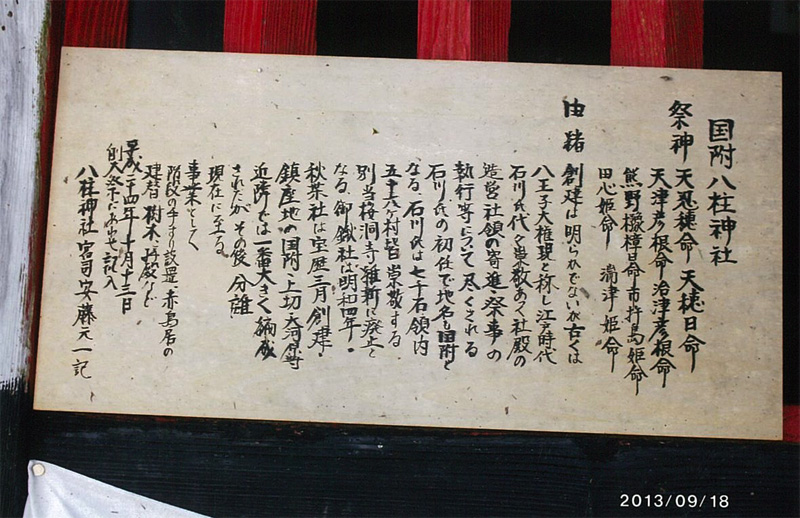 国附八柱神社
祭神 天忍穂命 天穂日命
天津彦根命 活津彦根命
熊野櫲樟日命 市杵島姫命
田心姫命 湍津姫命
由緒 創建は明らかでないが古くは
八王子大権現と称し江戸時代
石川氏代々崇敬あつく社殿の
造営社領の寄進・祭事の
執行等について尽くされる
石川氏の初任で地名も国附と
なる。石川氏は七千石領内
五十六ヶ村皆崇敬する。
別当桜洞寺維新に廃止と
なる。御鍬社は明和四年・
秋葉社は宝歴三月創建・
鎮産地の国附・上切・大河原等
近隣では一番大きく編成
されたがその後分離
現在に至る。
事業として
階段の手すり設置・赤鳥居の
建替 樹木など
平成二十四年十月十三日
例大祭にあわせ記入
八柱神社宮司安藤元一記
2013/09/18